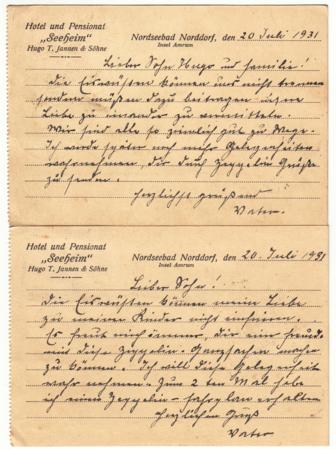 Hotel und Pensionat
„Seeheim"
Hugo T. Jannen & Söhne
Nordseebad Norddorf, den 20 Juli 1931
Insel Amrum
Lieber Sohn Hugo u Familie!
Die Eiswüsten können uns nicht trennen
sondern müssen dazu beitragen unsere
Liebe zu einander zu
Wir sind alle so ziemlich gut zu Wege.
Ich werde später noch mehr Gelegenheiten
wahrnehmen, Dir durch Zeppelin Grüße
zu senden.
Herzlichst grüßend
Vater.
Hotel und Pensionat
„Seeheim"
Hugo T. Jannen & Söhne
Nordseebad Norddorf, den 20. Juli 1931
Insel Amrum
Lieber Sohn!
Die Eiswüsten können meine Liebe
zu meinen Kinder nicht einfrieren.
Es freut mich immer, dir eine Freude
mit diese Zeppelin- machen
zu können. Ich will diese Gelegenheit
wahr nehmen. Zum 2 ten Mal habe
ich einen Zeppelin-fahrplan erhalten
Herzlichen Gruß
Vater